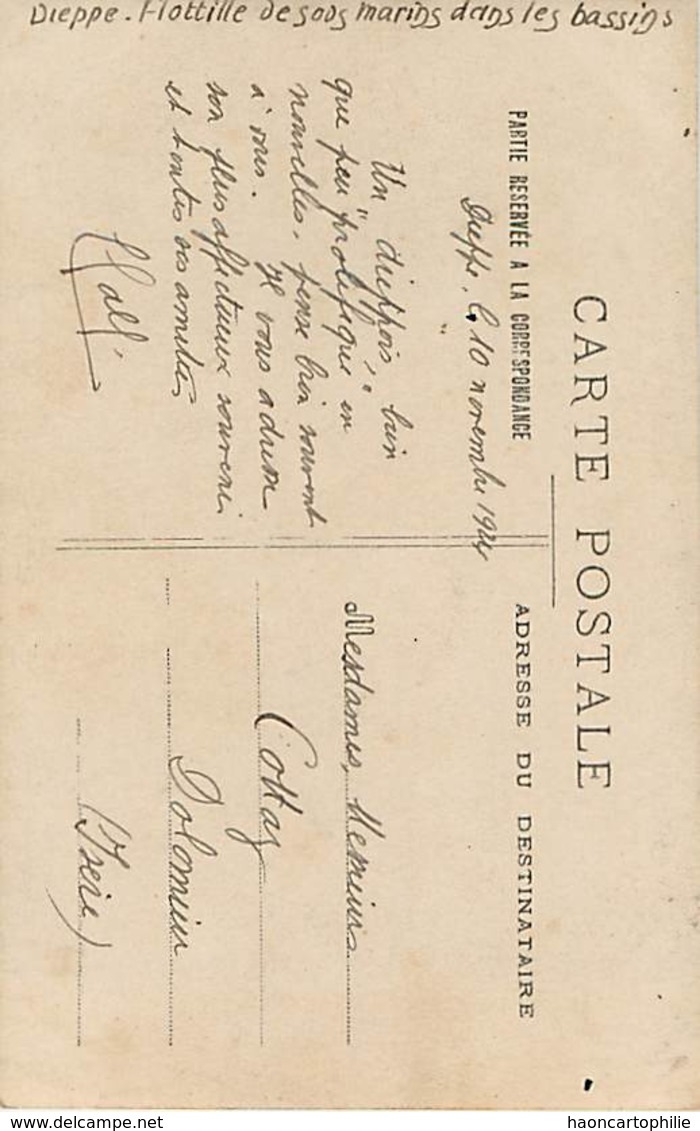 Dieppe. Flottille de sous marins dans les bassins
CARTE POSTALE
PARTIE RESERVÉE A LA CORRESPONDANCE
ADRESSE DU DESTINATAIRE
Dieppe, le 10 novembre 1924
Un dieppois, bien
que peu "prolifique" en
nouvelles, pense bien souvent
à vous. Il vous adresse
son plus affectueux souvenir
et toutes ses amitiés
Mesdames,
Cottaz
Dolomieu
(Isère)
haoncartophilie